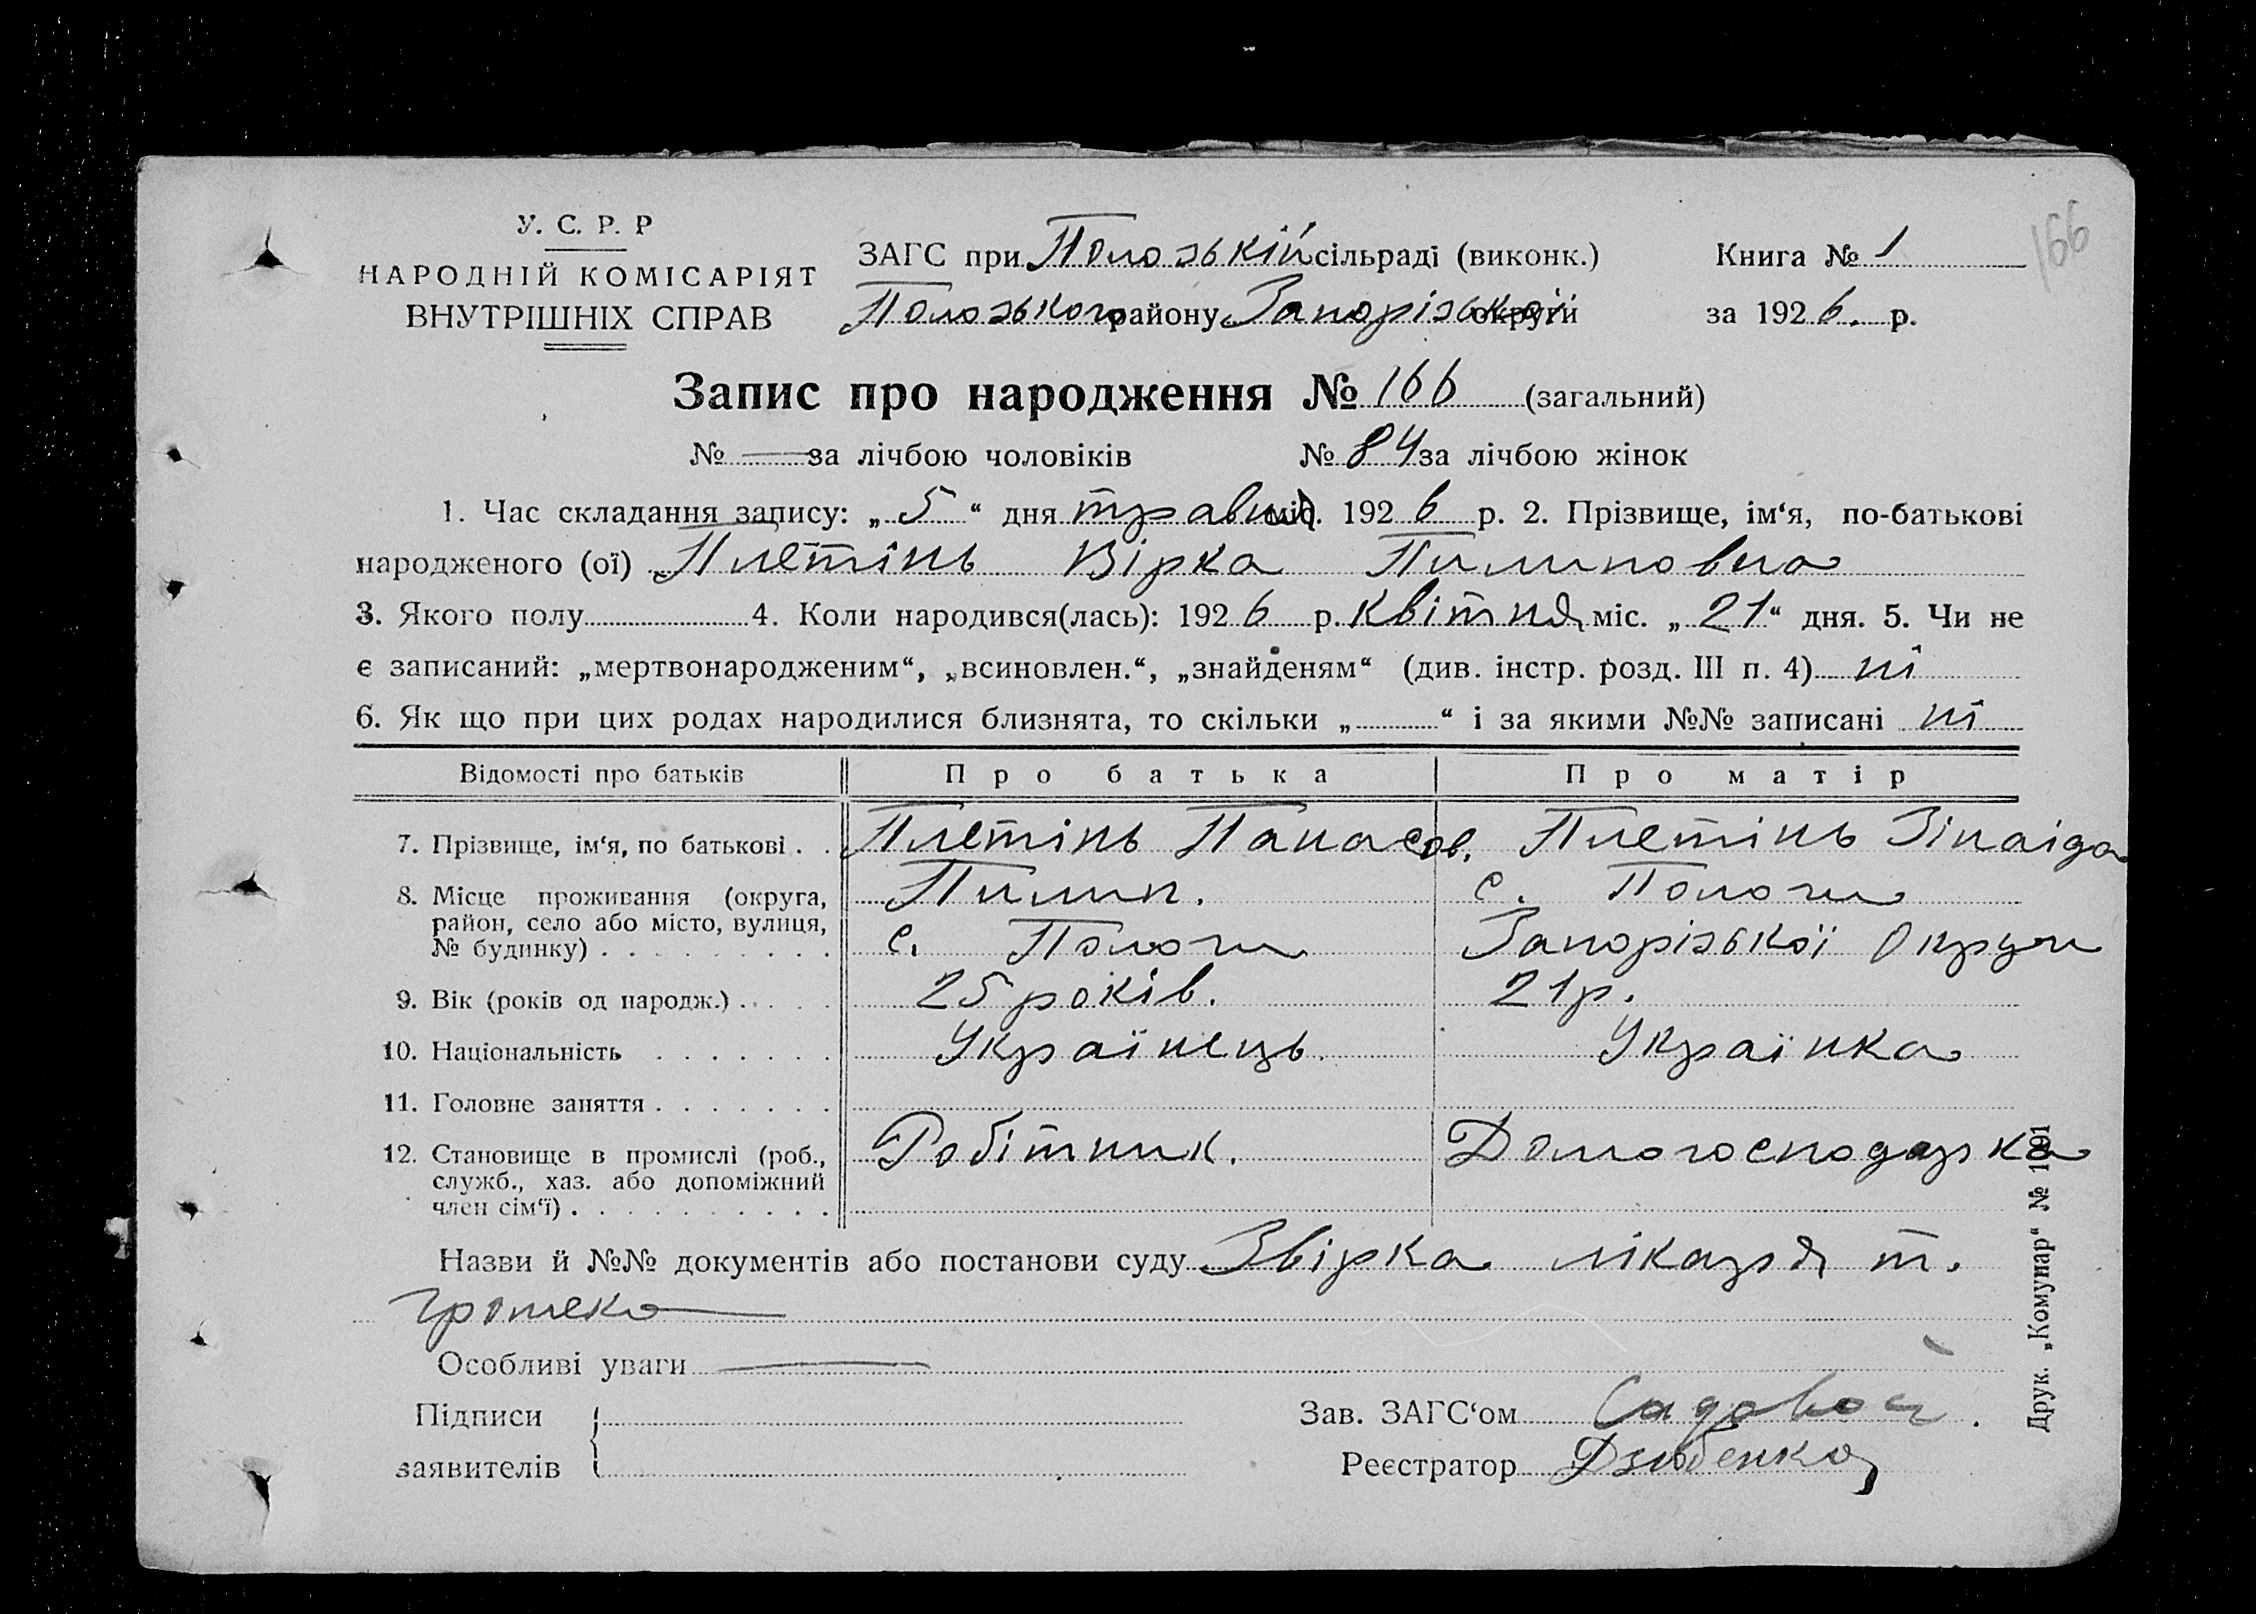 166
У. С. Р. Р
НАРОДНІЙ КОМІСАРІЯТ
ВНУТРІШНІХ СПРАВ
ЗАГС при Пологській сільраді (виконк.) Книга № 1
Пологського району Запорізької округи за 1926. р.
Запис про народження № 166 (загальний)
№ — за лічбою чоловіків № 84 за лічбою жінок
1. Час складання запису: „ 5 “ дня травня міс. 1926 р. 2. Прізвище, ім‘я, по-батькові
народженого (ої) Плетінь Вірка Пилиповна
3. Якого полу 4. Коли народився(лась): 1926 р. квітня міс. „ 21 “ дня. 5. Чи не
є записаний: „мертвонародженим“, „всиновлен.“, „знайденям“ (див. інстр. розд. III п. 4) ні
6. Як що при цих родах народилися близнята, то скільки „ “ і за якими №№ записані ні
Відомості про батьків Про батька Про матір
7. Прізвище, ім‘я, по батькові . . Плетінь Панасов. Плетінь Зінаіда
8. Місце проживання (округа, Пилип. с. Пологи
район, село або місто, вулиця,
№ будинку) . . . . . . . . . с. Пологи Запорізької Округи
9. Вік (років од народж.) . . . . 25 років. 21 р.
10. Національність . . . . . . . Українець. Українка
11. Головне заняття . . . . . . .
12. Становище в промислі (роб., Робітник. Домогосподарка
служб., хаз. або допоміжний
член сім‘ї) . . . . . . . . . .
Назви й №№ документів або постанови суду Звірка лікаря т.
Особливі уваги —
Підписи Зав. ЗАГС‘ом Садовой.
заявителів Реєстратор Дзюбенко
Друк. „Комунар“ № 1091